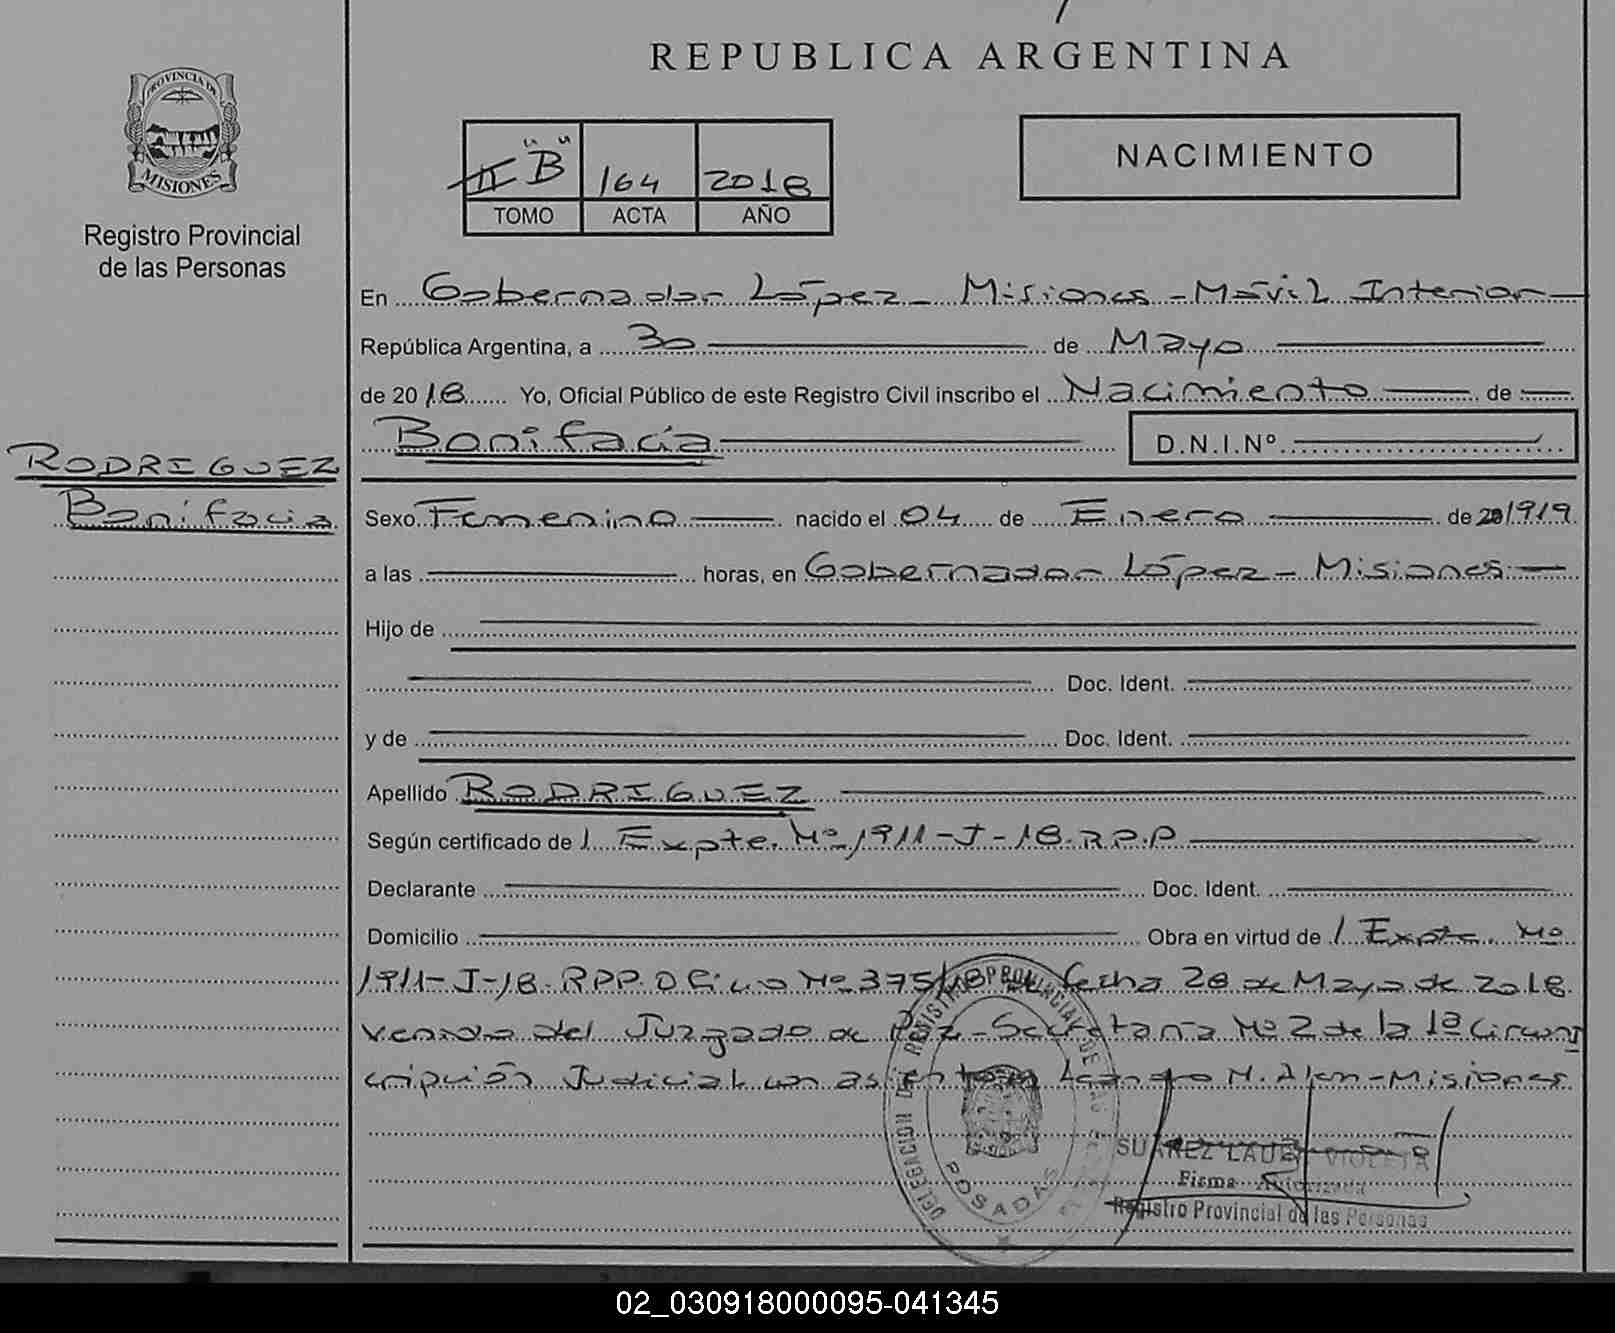 REPUBLICA ARGENTINA
PROVINCIA DE
MISIONES
Registro Provincial
de las Personas
II "B" 164 2018
TOMO ACTA AÑO
NACIMIENTO
En Gobernador López - Misiones - Móvil Interior
República Argentina, a 30 de Mayo
de 2018 Yo, Oficial Público de este Registro Civil inscribo el Nacimiento de
Bonifacia D.N.I.Nº
RODRIGUEZ
Bonifacia
Sexo Femenino nacido el 04 de Enero de 1919
a las horas, en Gobernador López - Misiones
Hijo de
Doc. Ident.
y de Doc. Ident.
Apellido RODRIGUEZ
Según certificado de / Expte. Nº 1911-J-18.R.P.P
Declarante Doc. Ident.
Domicilio Obra en virtud de / Expte. Nº
1911-J-18. RPP. Oficio Nº 375/18 de fecha 28 de Mayo de 2018
venido del Juzgado de Paz - Secretaría Nº 2 de la 1ª Circuns
cripción Judicial con asiento en Leandro N. Alem - Misiones
DELEGACION REGISTRO PROVINCIAL DE LAS
POSADAS
SUAREZ VIOLETA
Firma Autorizada
Registro Provincial de las Personas
02_030918000095-041345